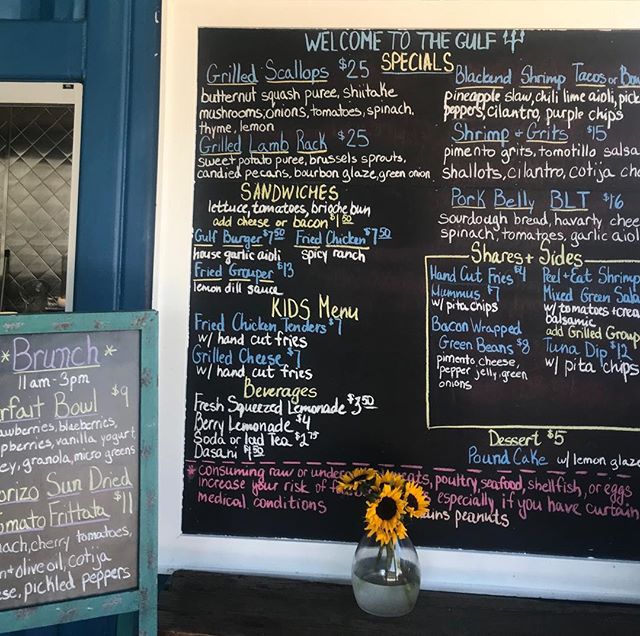 WELCOME TO THE GULF
SPECIALS
Grilled Scallops $25
butternut squash puree, shiitake
mushrooms, onions, tomatoes, spinach,
thyme, lemon
Grilled Lamb Rack $25
sweet potato puree, brussels sprouts,
candied pecans, bourbon glaze, green onion
SANDWICHES
lettuce, tomatoes, brioche bun
add cheese or bacon $1.50
Gulf Burger $7.50 Fried Chicken $7.50
house garlic aioli spicy ranch
Fried Grouper $13
lemon dill sauce
KIDS Menu
Fried Chicken Tenders $7
w/ hand cut fries
Grilled Cheese $7
w/ hand cut fries
Beverages
Fresh Squeezed Lemonade $3.50
Berry Lemonade $4
Soda or Iced Tea $1.75
Dasani $1.50
Blackend Shrimp Tacos or
pineapple slaw, chili lime aioli,
peppers, cilantro, purple chips
Shrimp + Grits $15
pimento grits, tomotillo salsa
shallots, cilantro, cotija
Pork Belly BLT $16
sourdough bread, havarty
spinach, tomatoes, garlic
Shares + Sides
Hand Cut Fries $4
Hummus $7
w/ pita chips
Bacon Wrapped
Green Beans $8
pimento cheese,
pepper jelly, green
onions
Peel + Eat Shrimp
Mixed Green
w/ tomatoes +
balsamic
add Grilled
Tuna Dip $12
w/ pita chips
Dessert $5
Pound Cake w/ lemon
* consuming raw or poultry, seafood, shellfish, or eggs
increase your risk of especially if you have curtain
medical conditions peanuts
*Brunch*
11am-3pm
Bowl $9
blueberries,
vanilla yogurt
granola, micro greens
Sun Dried
Frittata $11
cherry tomatoes,
olive oil, cotija
pickled peppers